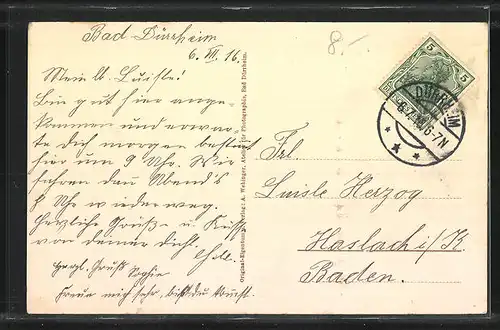 Bad Dürrheim
6. VII. 16.
8.-
Mein lb. Luisle!
Bin gut hier ange-
kommen und erwar-
te dich morgen bestimmt
hier um 9 Uhr. Wir
fahren dan Abend's
Uhr wieder weg.
Herzliche Grüße u. Küsse
von deiner dichl.
Herzl. Gruß Sophie
Freue mich sehr, bist du kommst.
Original-Eigentum u. Verlag: A. Wehinger, Atelier für Photographie, Bad Dürrheim.
5 5
DÜRRHEIM
6-7N
Frl.
Luisle Herzog
Haslach i/K.
Baden.